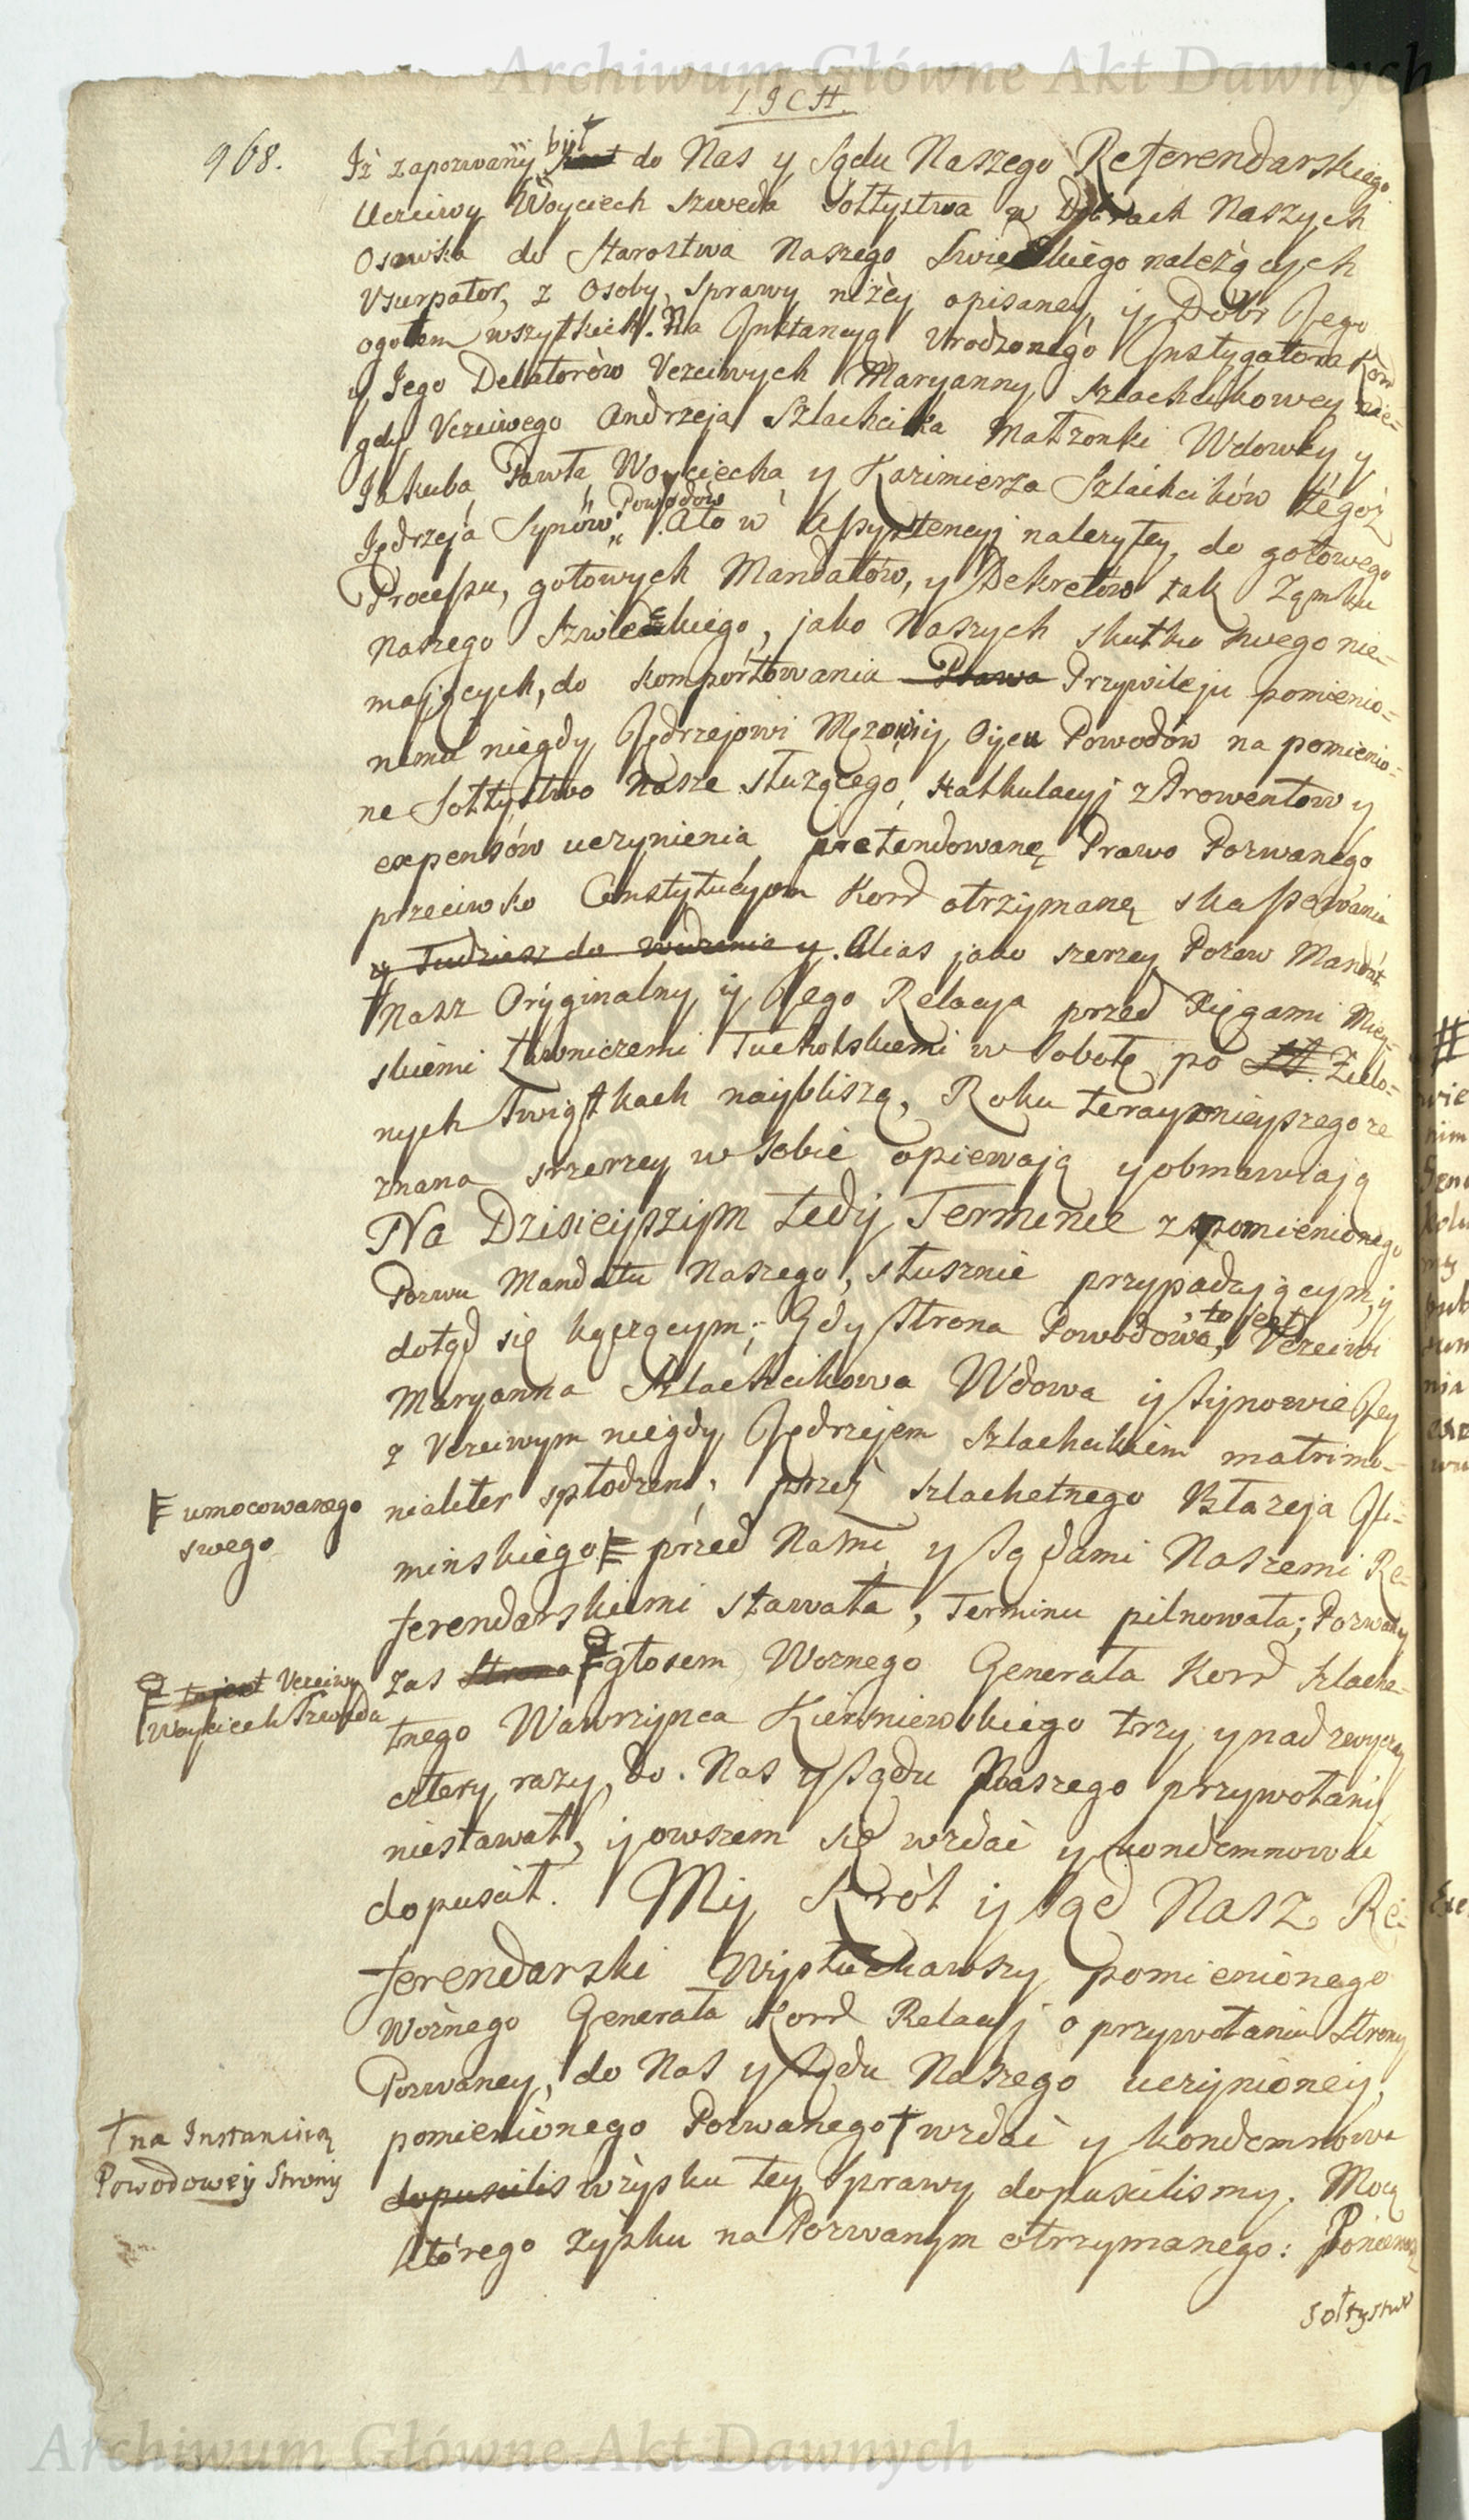 Archiwum Główne Akt Dawnych
I. J C H.
968.
Iż zapozwany był do Nas y Sądu Naszego Referendarskiego
Uczciwy Woyciech Szweda Sołtystwa w Dobrach Naszych
Osowka do Starostwa Naszego Swieckiego należących
Usurpator, z Osoby, Sprawy niżey opisaney, y Dobr Jego
ogołem wszytkich. Na Jnstancyą Urodzonego Jnstygatora Kor
y Jego Delatorów Uczciwych Maryanny Szlachcikowey nie-
gdy Uczciwego Andrzeja Szlachcika Małżonki Wdowy y
Jakuba, Pawła, Woyciecha y Kazimierza Szlachcików tegoż
Jędrzeja Synów Powodów. Ato w Assystencyj należytey, do gotowego
Processu, gotowych Mandatów, y Dekretów tak Zamku
Naszego Szwieckiego, jako Naszych skutku swego nie-
mających, do komportowania Prawa Przywileju pomienio-
nemu niegdy Jędrzejowi Mężowi y Oycu Powodów na pomienio-
ne Sołtystwo Nasze służącego, Kalkulacyj z Prowentow y
expensów uczynienia, pretendowanę Prawo Pozwanego
przeciwko Constytucyom Kord otrzymanę skassowania
y Tudziesz do widzenia y. Alias jako szerzey Pozew Mandat
Nasz Oryginalny y Jego Relacya przed Xięgami Miey-
skiemi Ławniczemi Tucholskiemi w Sobotę po Zielo-
nych Swiątkach naybliszą, Roku teraznieyszego ze
znana szerzey w sobie opiewają y obmawiają
Na Dzisieyszym tedy Terminie z pomienionego
Pozwu Mandatu Naszego, słusznie przypadającym, y
dotąd się toczącym; Gdy Strona Powodowa, to jest Uczciwi
Maryanna Szlachcikowa Wdowa y Synowie Jey
z Uczciwym niegdy Jędrzejem Szlachcikiem matrimo-
nialiter spłodzeni, przez Szlachetnego Błażeja Ji-
minskiego przed Nami y Sądami Naszemi Re-
ferendarskiemi stawała, Terminu pilnowała; Pozwany
umocowanego
swego
zas Strona głosem Woznego Generała Kord Szlache-
to jest Uczciwy
Woyciech Szweda
tnego Wawrzynca Kierniewskiego trzy, y nad zwyczay
cztery razy, do Nas y Sądu Naszego przywołany
niestawał, y owszem się wzdać y kondemnować
dopuscił. My Król y Sąd Nasz Re-
ferendarski Wysłuchawszy pomienionego
Woznego Generała Kord Relacyj o przywołaniu Strony
Pozwaney, do Nas y Sądu Naszego uczynioney,
pomienionego Pozwanego † wzdać y kondemnowa
† na Instancyią
Powodowey Strony
dopuscilis wzysku tey Sprawy dopuscilismy. Mocą
którego zysku na Pozwanym otrzymanego: Poniewasz
Sołtystwo
Archiwum Główne Akt Dawnych